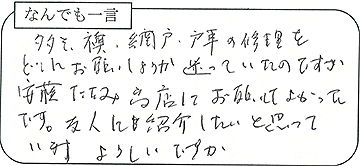 なんでも一言
タタミ、襖、網戸、戸車の修理を
どこにお願いしようか迷っていたのですが
安藤たたみ当店にお願いしてよかった
です。友人にも紹介したいと思って
います よろしいですか